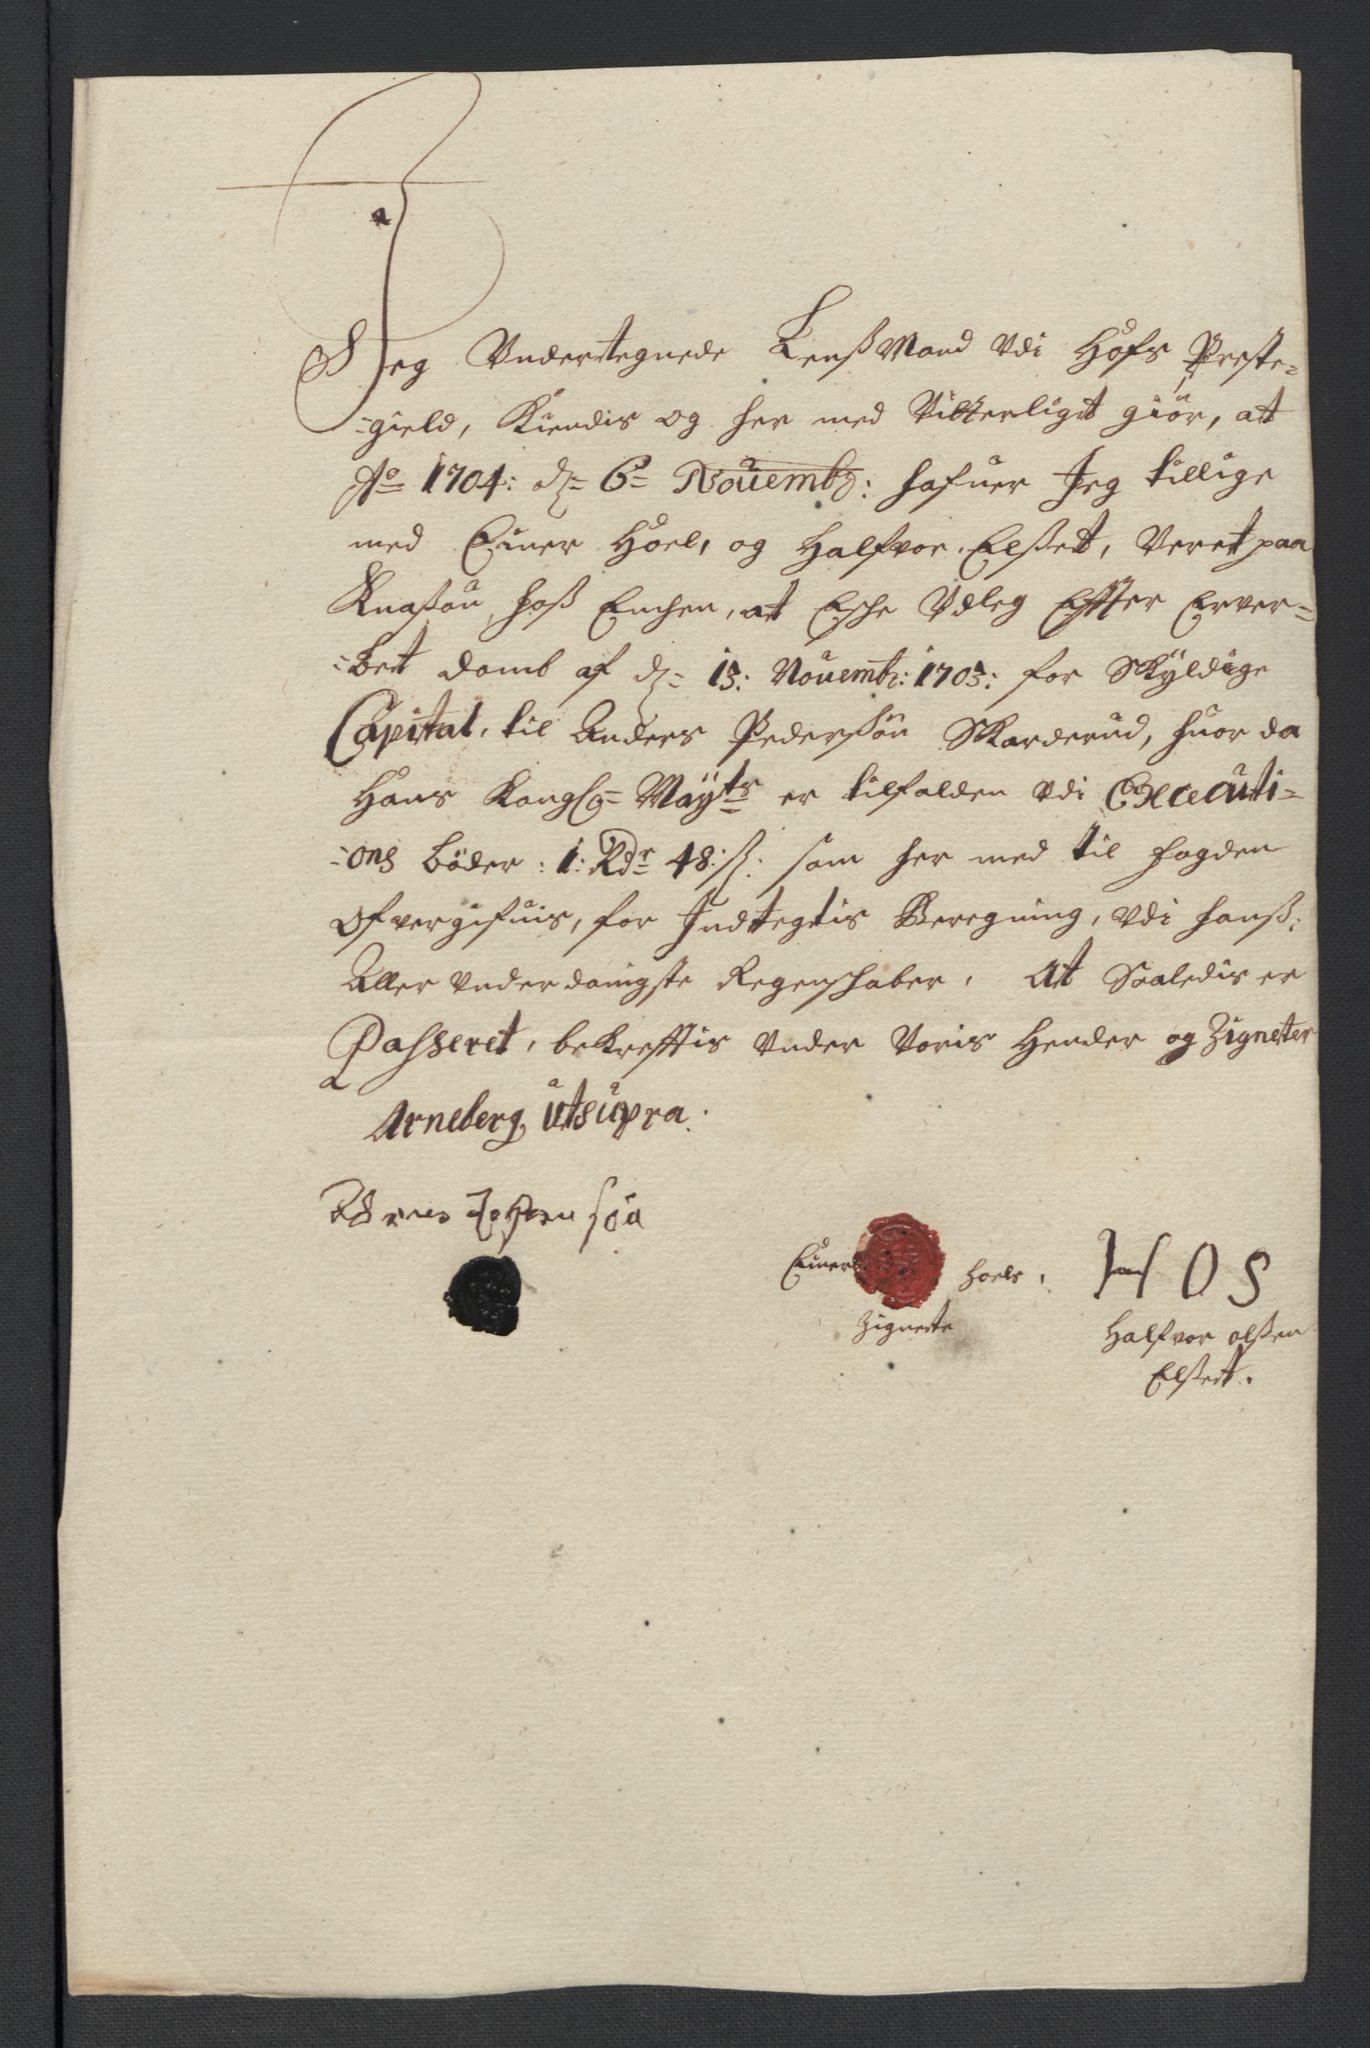 Jeg Undertegnede Lenßmand udi Hofs Preste-
-gield, Kiendis og her med Vitterligt giör, at
Ao 1704: d: 6= Nouembr: hafuer Jeg tillige
med Einer Hoel, og Halfvor Elßet, Veret paa
Knaßau, hoß Enchen, at Esche Vdleg Effter Erver-
-bet domb af d: 13: Nouembr: 1703: for Skyldige
Capital, til Anders Pederssön Skarderud, huor da
Hans Kongl= Mayts er tilfalden udi Executi-
-ons böder: 1: Rdr 48: ß: som her med til fogden
ofvergifuis, for Indtegtis Beregning, udi hanß
Aller underdanigste Regenschaber. At Saaledis er
Passeret, bekrefftis under Voris Hender og Zigneter
Arneberg utsupra.
Johansön
Einer Hoels HOS
Zignete Halfvor olßen
Elßett.